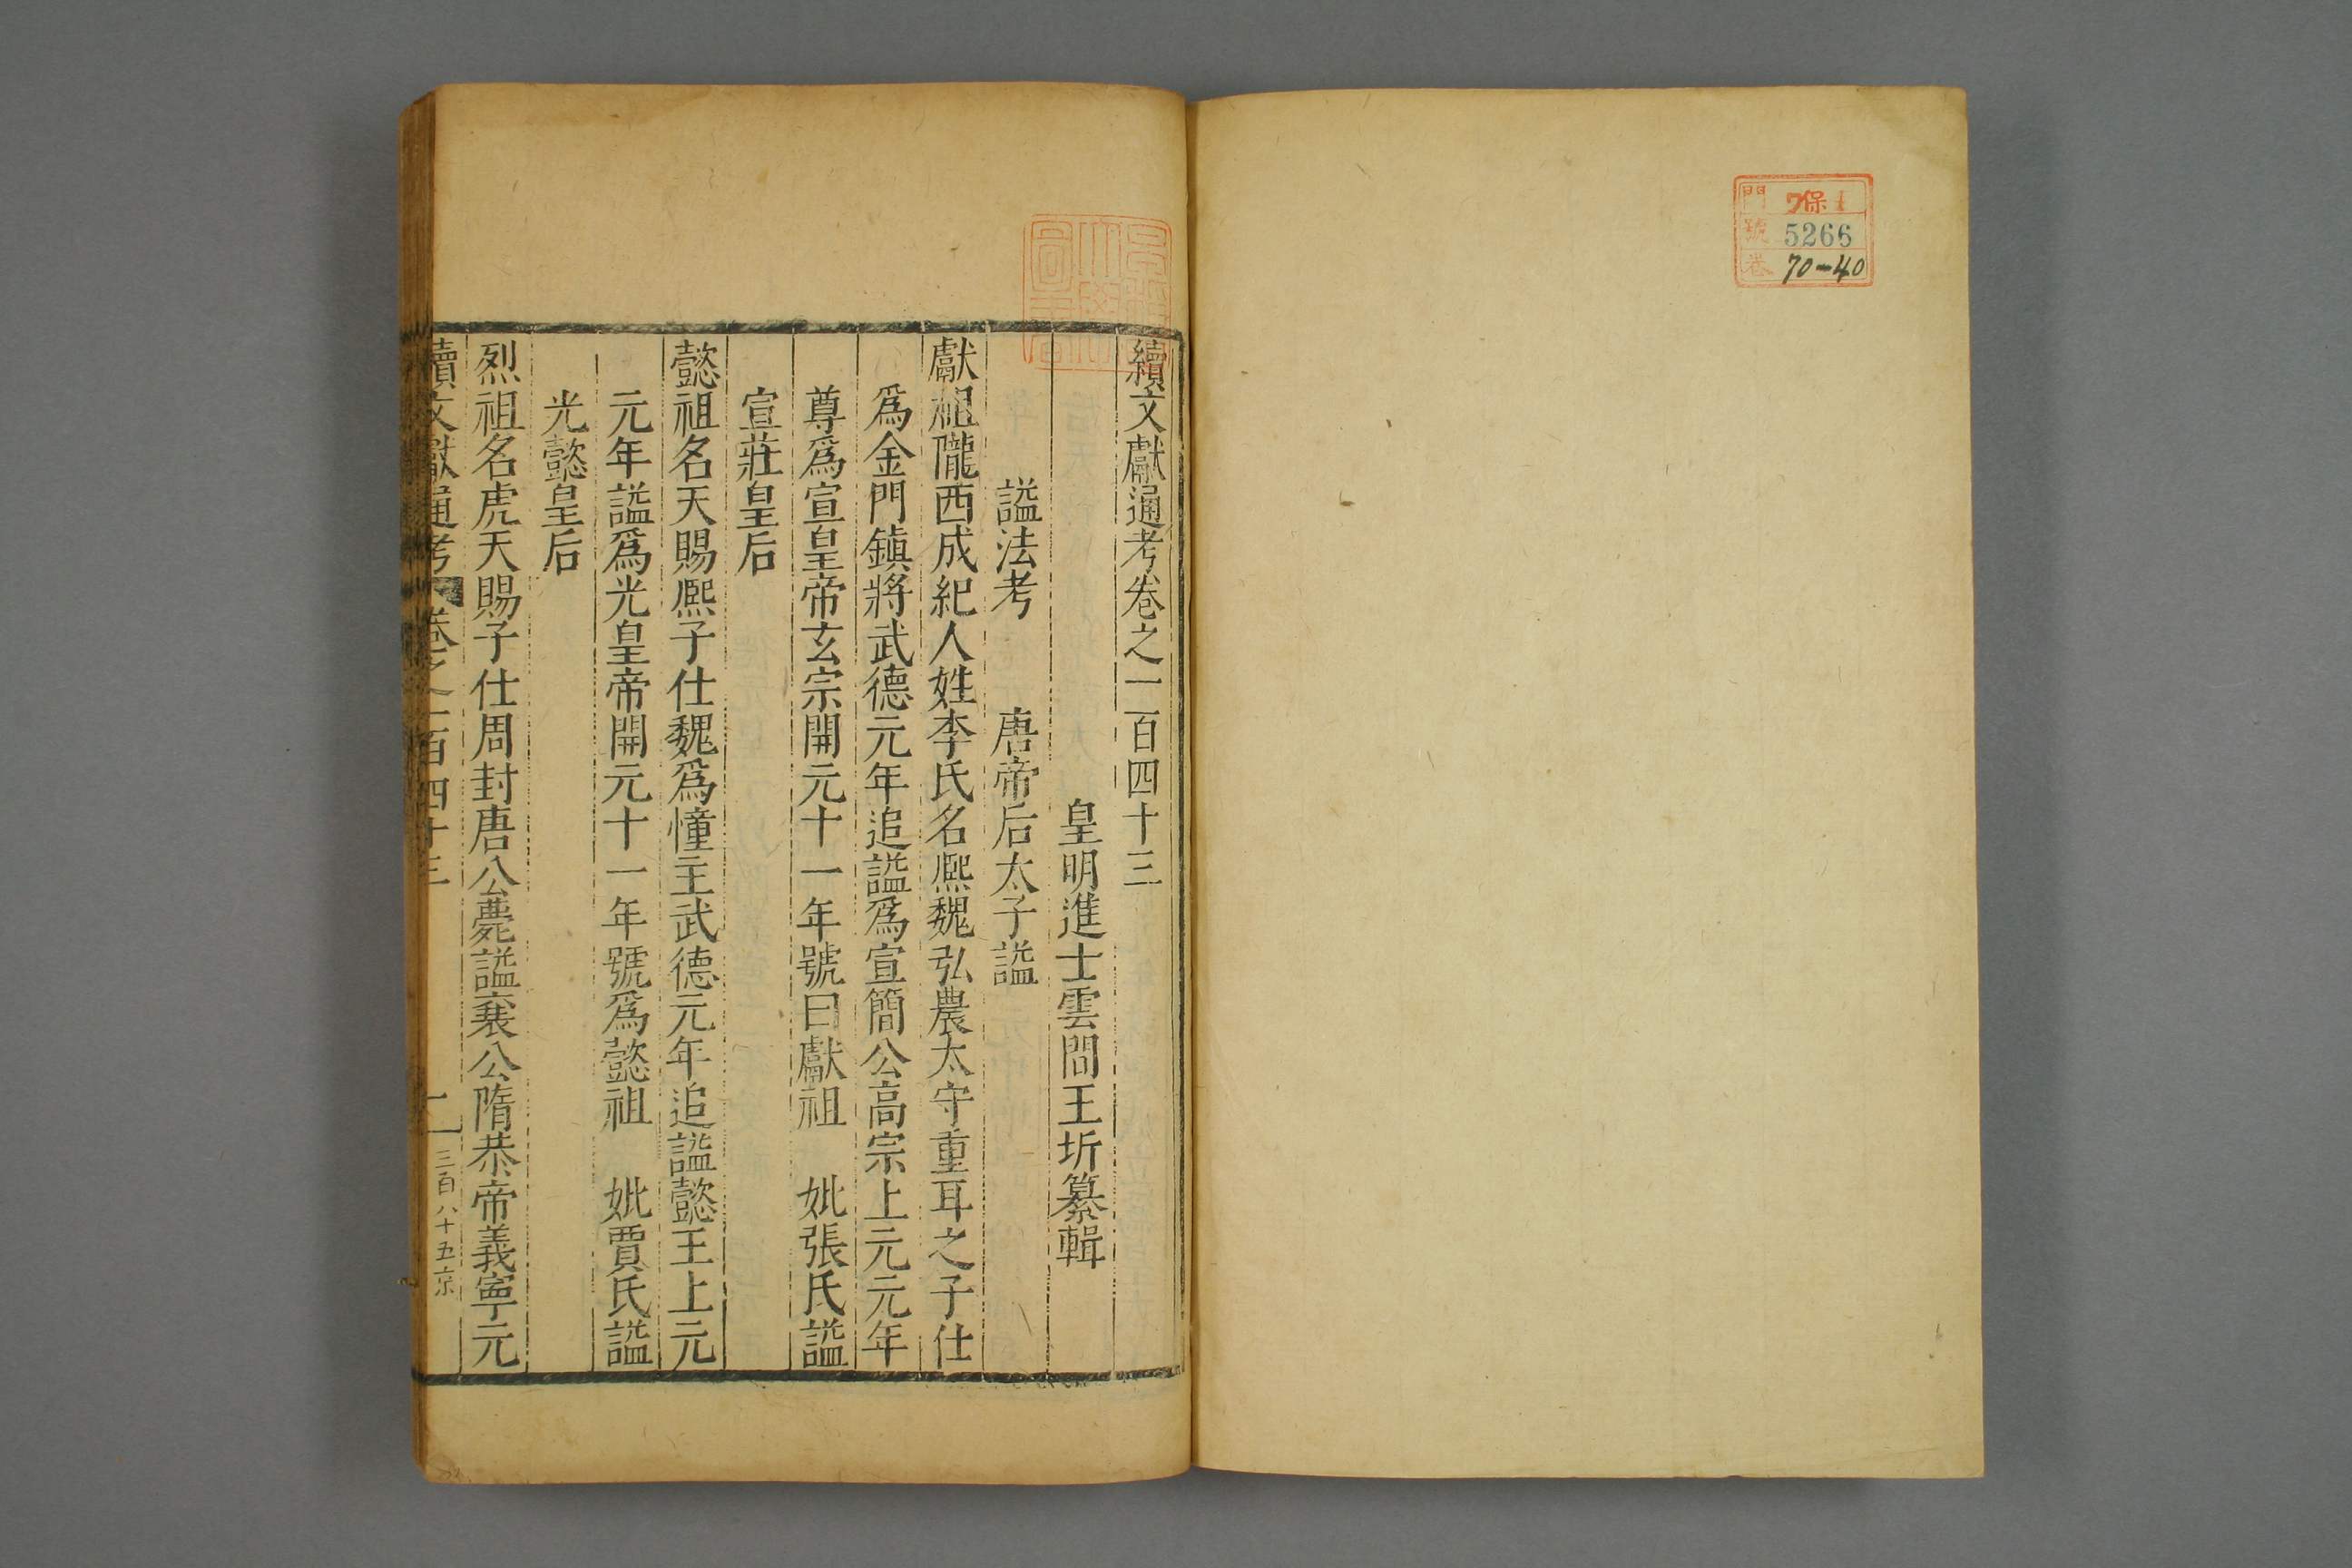 門 保
號 5266
卷 70-40
續文獻通考卷之一百四十三
皇明進士雲間王圻纂輯
謚法考 唐帝后太子謚
獻祖隴西成紀人姓李氏名熈魏弘農太守重耳之子仕
爲金門鎮將武德元年追謚爲宣簡公高宗上元元年
尊爲宣皇帝玄宗開元十一年號曰獻祖 妣張氏謚
宣莊皇后
懿祖名天賜熈子仕魏爲憧主武德元年追謚懿王上元
元年謚爲光皇帝開元十一年號爲懿祖 妣賈氏謚
光懿皇后
烈祖名虎天賜子仕周封唐公薨謚襄公隋恭帝義寧元
續文獻通考 卷之一百四十三 一 三百八十五